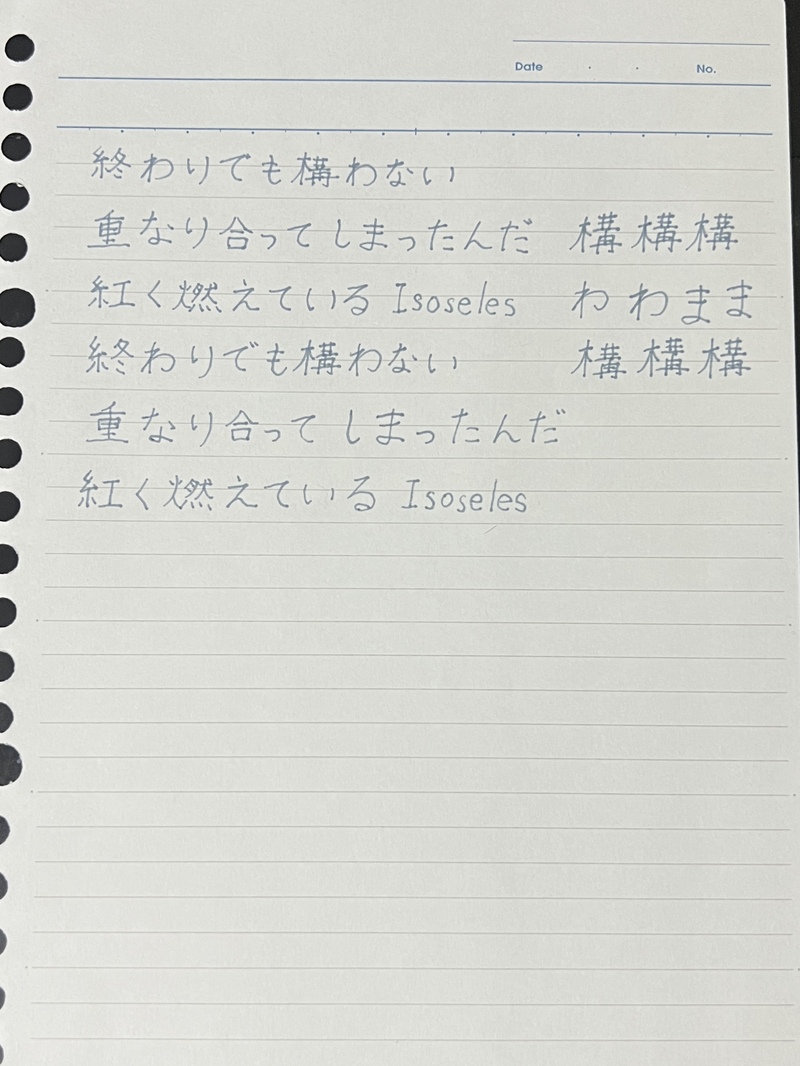 Date . . No.
終わりでも構わない
重なり合ってしまったんだ 構構構
紅く燃えている Isoseles わわまま
終わりでも構わない 構構構
重なり合ってしまったんだ
紅く燃えている Isoseles